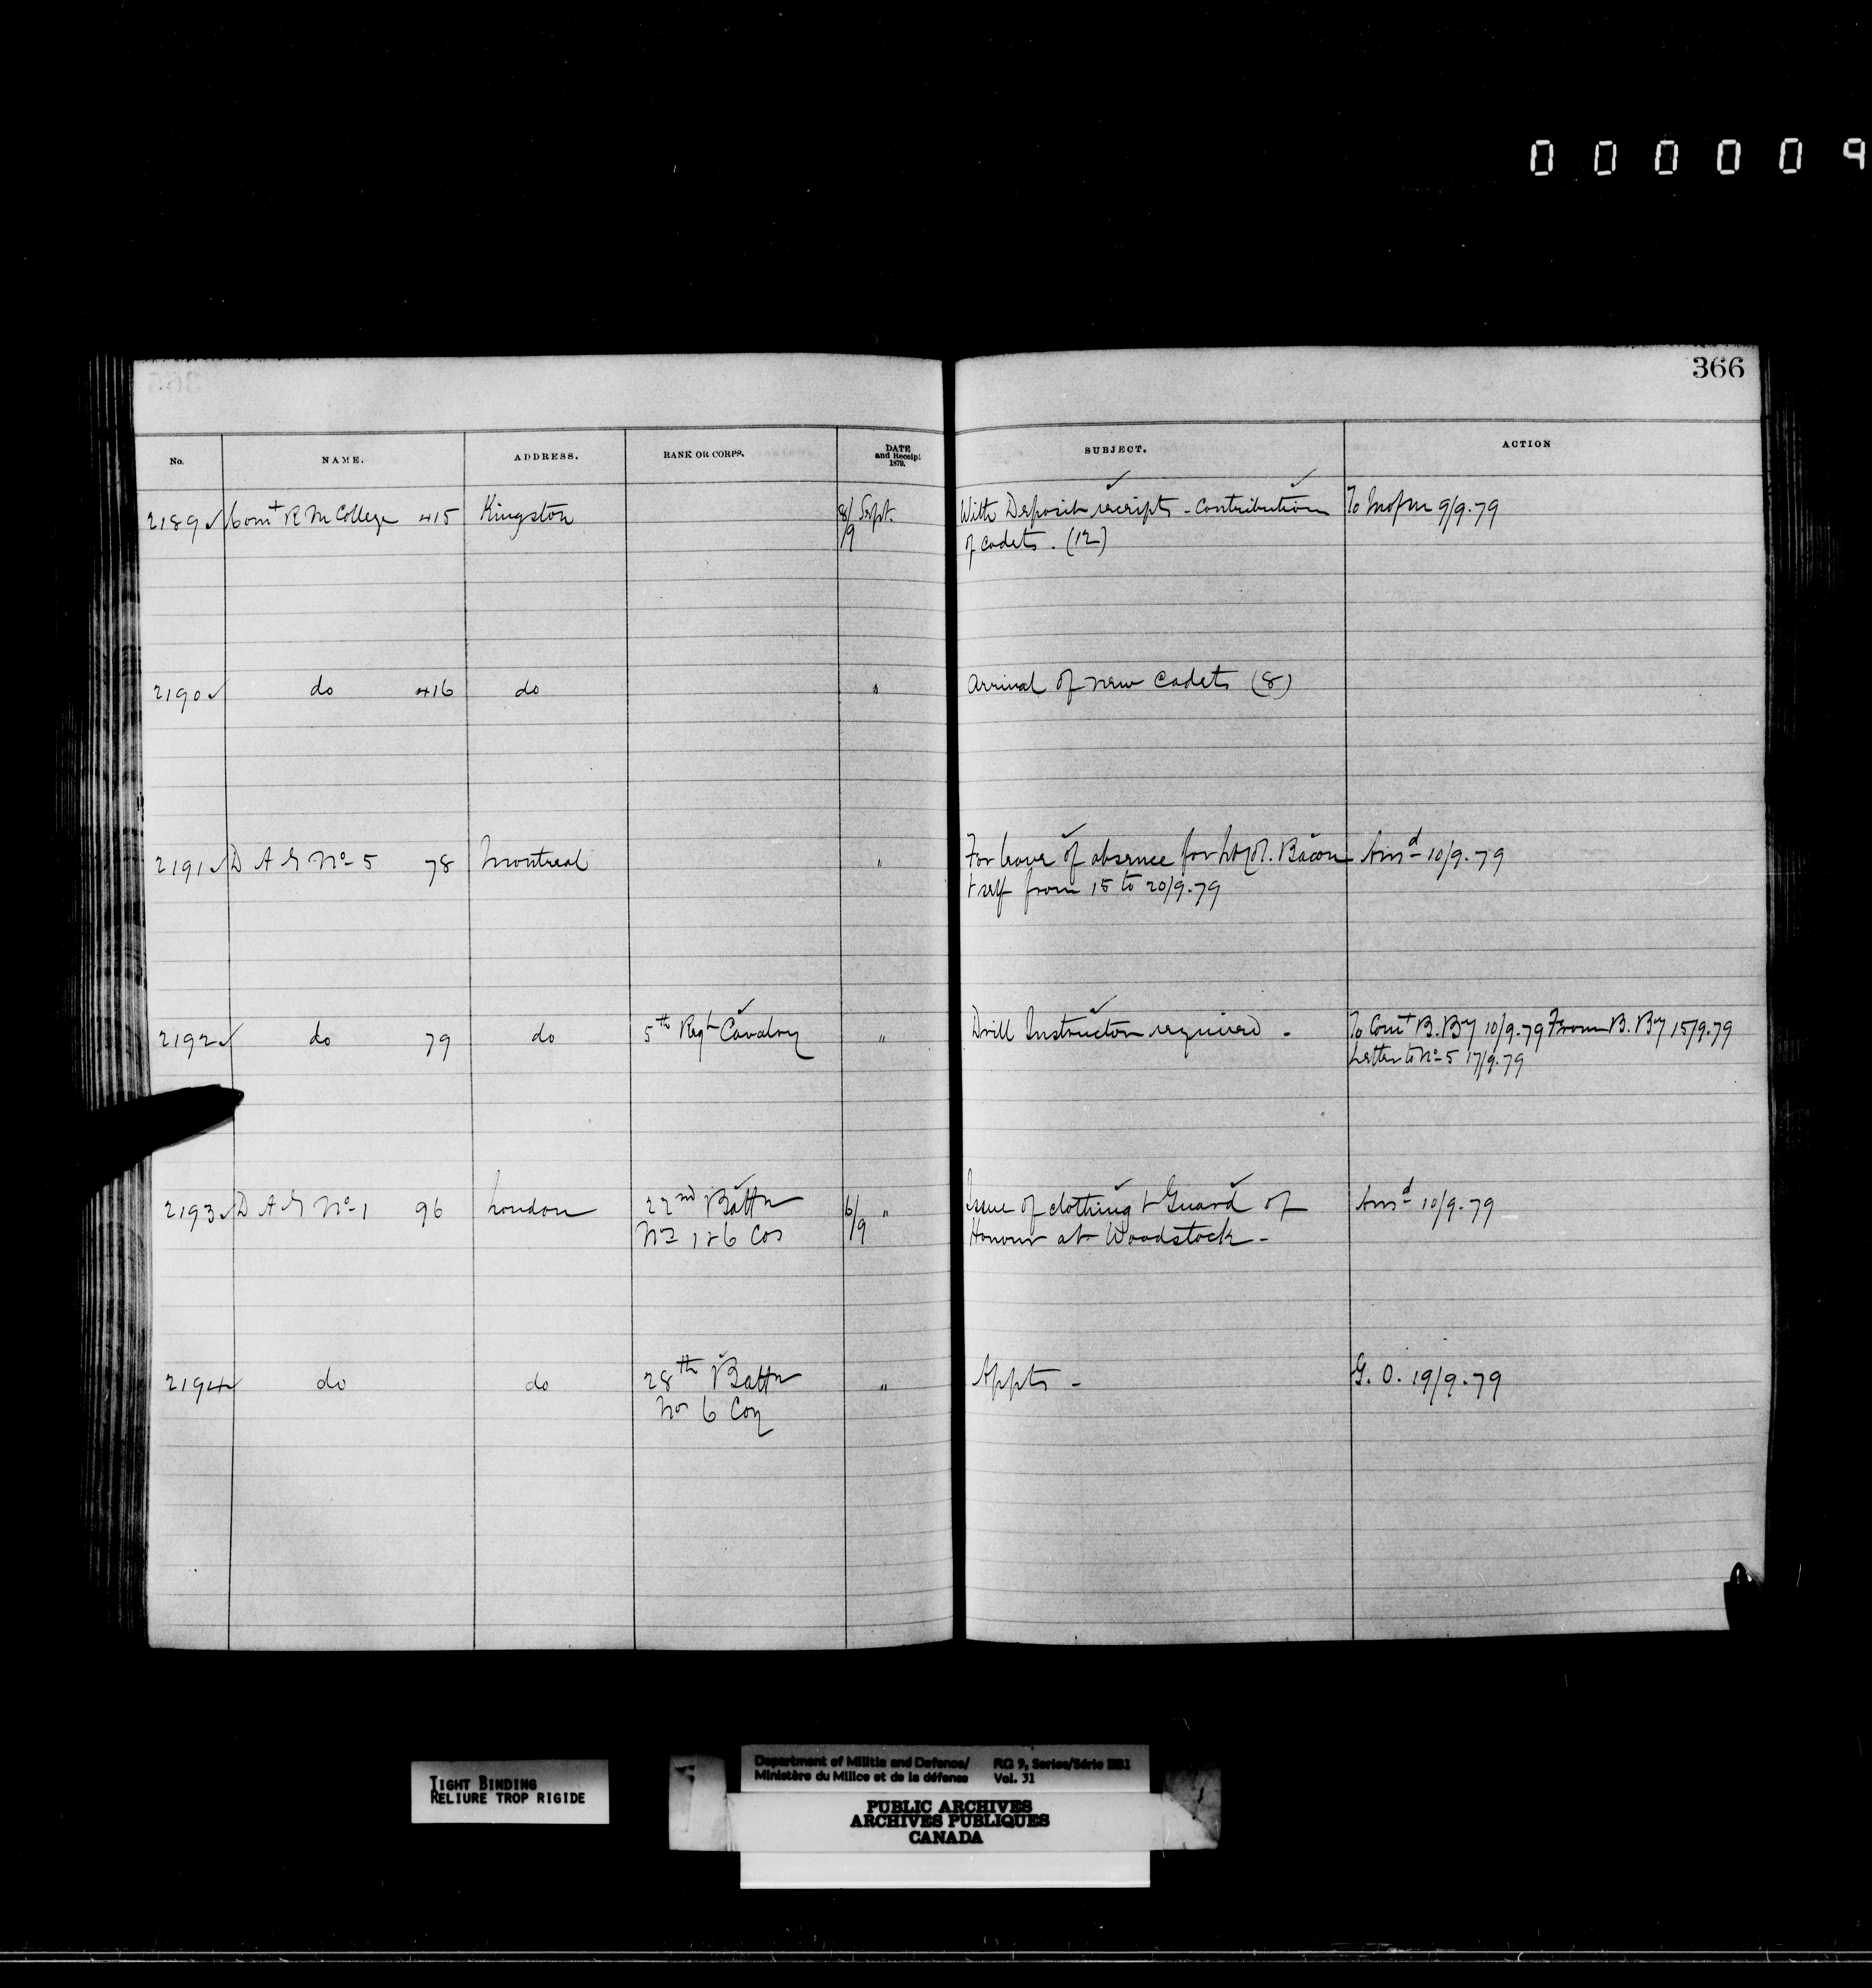 000009
366
No. NAME. ADDRESS. RANK OR CORPS. DATE and Receipt 1879. SUBJECT. ACTION
2189 Comt R M College 415 Kingston 8/9 Sept. With Deposit receipts - Contribution To M of M 9/9.79
of Cadets. (12)
2190 do 416 do " Arrival of new Cadets (8)
2191 D A G No 5 78 Montreal " For leave of absence for Lt Col. Bacon Ansd 10/9.79
& self from 15 to 20/9.79
2192 do 79 do 5th Regt Cavalry " Drill Instructor required - To Comt B. By 10/9.79 From B. By 15/9.79
Letter to No 5 17/9.79
2193 D A G No 1 96 London 22nd Battn 6/9 " Issue of clothing & Guard of Ansd 10/9.79
No 1 & 6 Cos Honour at Woodstock -
2194 do do 28th Battn " Appts - G. O. 19/9.79
No 6 Coy
TIGHT BINDING
RELIURE TROP RIGIDE
Department of Militia and Defence/ RG 9, Series/Série IIB1
Ministère du Milice et de la défense Vol. 31
PUBLIC ARCHIVES
ARCHIVES PUBLIQUES
CANADA